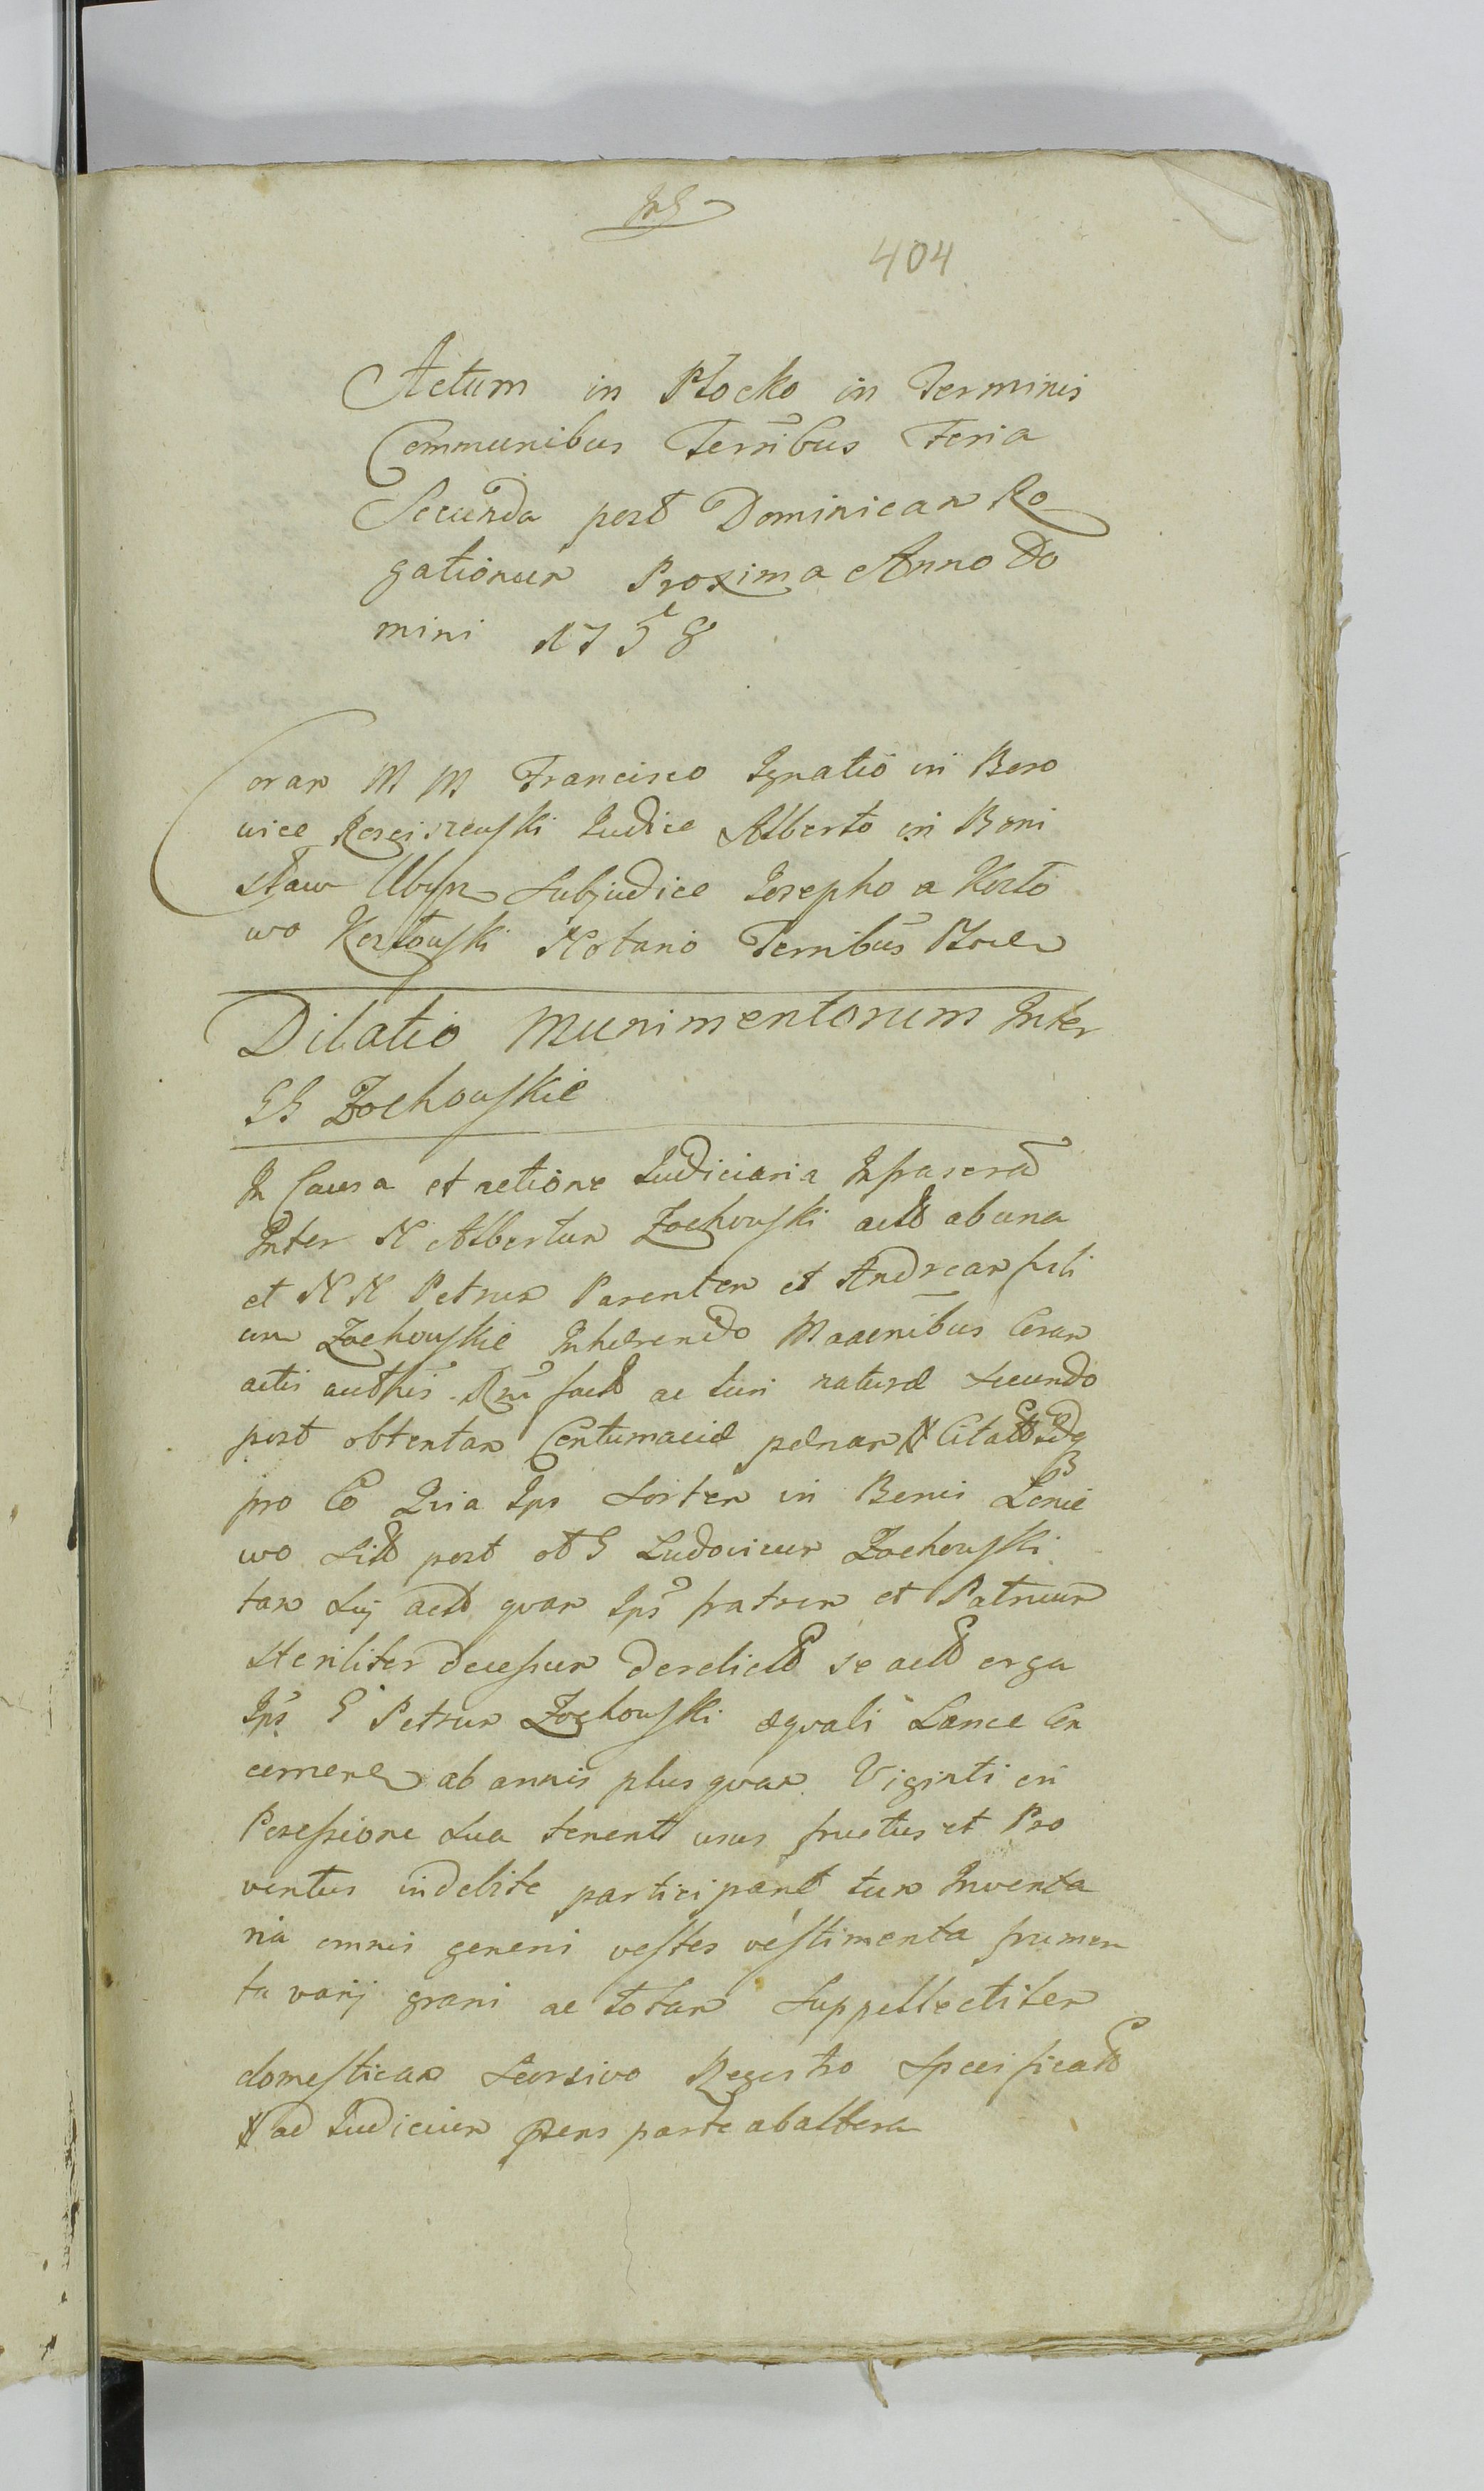 404
Actum in Płocko in Terminis
Communibus Terribus Feria
Secunda post Dominicam Ro
gationum Proxima Anno Do
mini 1758
Coram M M Francisco Ignatio in Boro
wice Kosciszewski Judice Alberto in Boni
sław Ubysz Subjudice Josepho a Kozło
wo Kozłowski Notario Terribus Płoc
Dilatio Munimentorum Inter
GG Zochowskie
In Causa et actione Judiciaria Infrascra
Inter N Albertum Zochowski act ab una
et N N Petrum Parentem et Andream fili
um Zochowskie Inhærendo
actis authis fact ac Juri naturæ secundo
post obtentam Contumaciæ pænam Citatos Ideo
pro Eo Quia Ips Sortem in Bonis
wo Sit post ol G Ludovicum Zochowski
tam Suj act quam Ips fratrem et Patruum
steriliter decessum derelict se act erga
Ips G Petrum Zochowski æquali Lance Con
cernen ab annis plus quam Viginti in
Possessione sua tenent usus fructus et Pro
ventus indebite participant tum Inventa
ria omnis generis vestes vestimenta frumen
ta varij grani ac totam Suppellectilem
domesticam Seorsivo Regestro Specificat
ad Judicium parte ab altera